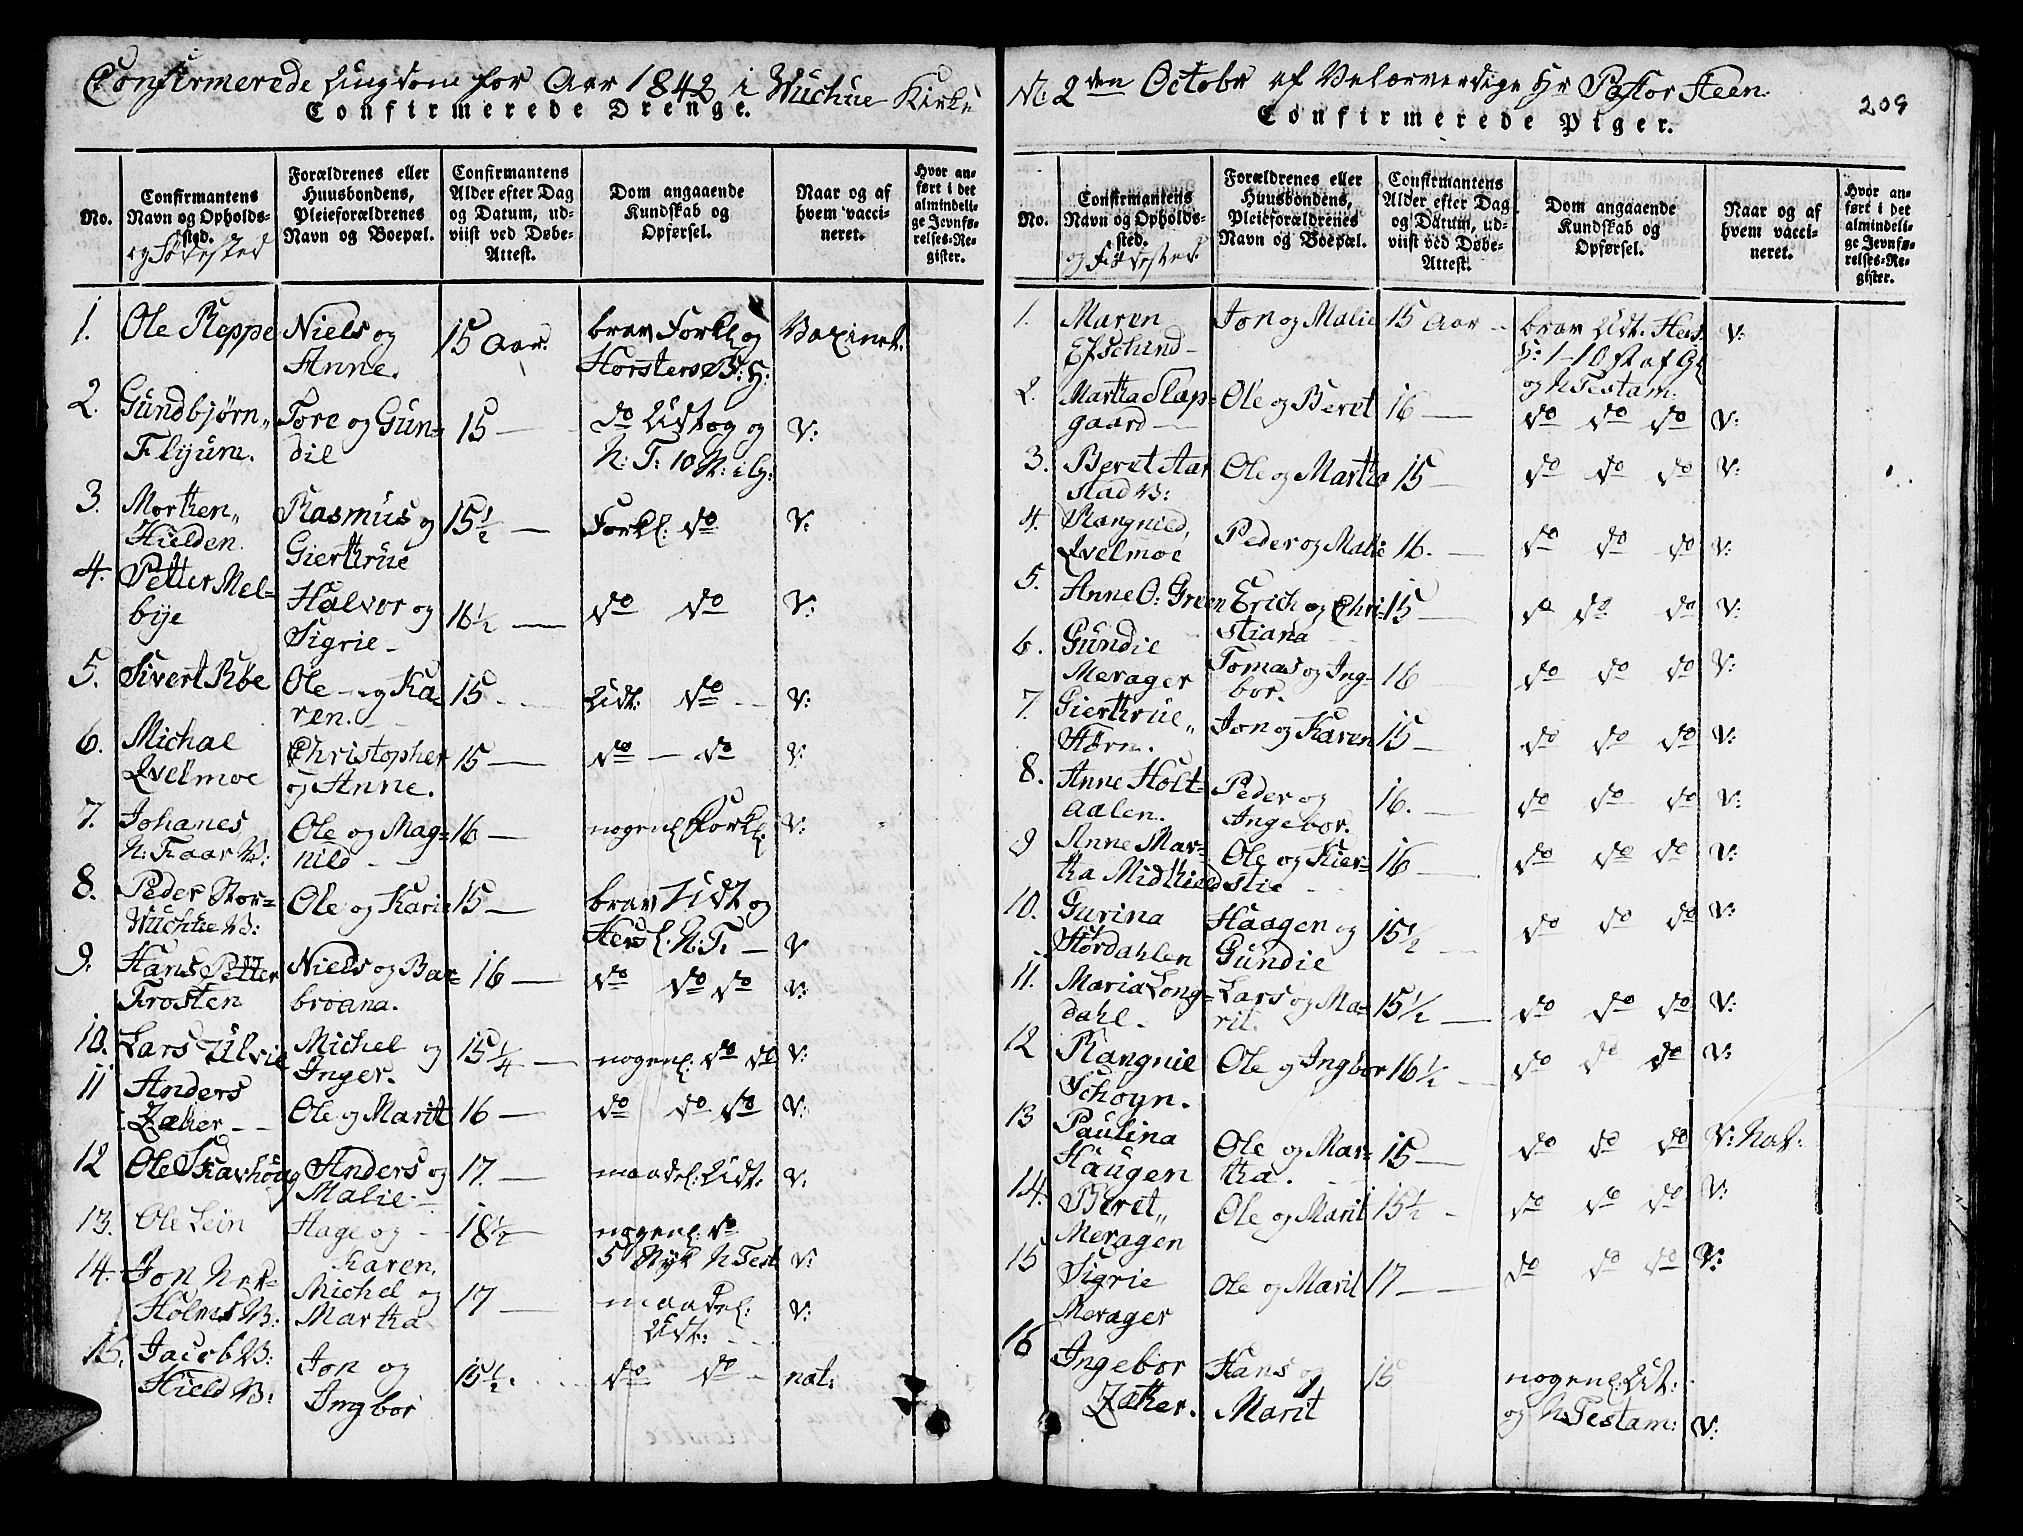 Confirmerede Ungdom for Aar 1842 i Wuchue Kirke
Confirmerede Drenge.
No.
Confirmantens Navn og Opholdssted.
og Födested
Forældrenes eller Huusbondens, Pleieforældrenes Navn og Boepæl.
Confirmantens Alder efter Dag og Datum, udviist ved Døbe-Attest.
Dom angaaende Kundskab og Opførsel.
Naar og af hvem vaccineret.
Hvor anført i det almindelige Jevnførelses-Register.
1. Ole Reppe Niels og Anne. 15 Aar. brav Forkl og V: Vaxinet.
2. Gundbjørn Flyum. Tore og Gundil 15 — do Udtog og N: T: V:
3. Morthen Hielden. Rasmus og Gierthrue 15 1/2 — Forkl: do V:
4. Petter Melbye Halvor og Sigrie 16 1/2 — do do V:
5. Sivert Röe Ole og Karen. 15 Udt: do V:
6. Michael Qvelmoe Christopher og Anne. 15 — do — do V:
7. Johanes N: Ole og Magnild 16 — nogenl Forkl. V:
8. Peder Stor Wuchue V: Ole og Karie 15 — brav Udt og N: T: — V
9. Hans Petter Frosten Niels og Barbroana. 16 — do do do V:
10. Lars Ulvie Michel og Inger. 15 1/4 — nogenl: do do V:
11 Anders Zæker Ole og Marit 16 — do do do V:
12 Ole Skavhöug Anders og Malie 17. — maadel: Udt: V:
13. Ole Lein Hage og Karen. 18 1/2 nogenl: do 5 Styk N Test
14. Jon Michel og Martha 17 — maadel: Udt: V:
15. Jacob Hield V: Jon og Ingbor 15 1/2. do do nat:
2den Octobr af Velærverdige Hr Pastor Steen.
209
Confirmerede Piger.
No.
Confirmantens Navn og Opholdssted.
og Födested.
Forældrenes eller Huusbondens, Pleieforældrenes Navn og Boepæl.
Confirmantens Alder efter Dag og Datum, udviist ved Døbe-Attest.
Dom angaaende Kundskab og Opførsel.
Naar og af hvem vaccineret.
Hvor anført i det almindelige Jevnførelses-Register.
1. Maren Jon og Malie 15 Aar brav Udt. og N Testam: V:
2. Martha Slapgaard Ole og Beret 16 — do do do V:
3. Beret Aarstad V: Ole og Martha 15 — do do do V:
4. Rangnild Qvelmoe Peder og Malie 16. — do do do V:
5. Anne O: Green Erich og Christiana 15 — do do do V:
6. Gundie Merager Tomas og Ingbor. 16 — do do do V:
7. Gierthrue Hörn. Jon og Karen 15 — do do do V:
8. Anne Holtaalen. Peder og Ingebor. 16. — do do do V:
9 Anne Martha Midhield Ole og Kierstie 16 — do do do V:
10. Gurina Stördahlen Haagen og Gundie 15 1/2 — do do do V:
11. Maria Longdahl. Lars og Marit. 15 1/2 — do do do V:
12 Rangnie Schoyn. Ole og Ingbor 16 1/2 — do do do V:
13 Paulina Haugen Ole og Martha. 15 — do do do V: Nat:
14. Beret Meragen Ole og Marit 15 1/2 — do do do V:
15 Sigrie Merager Ole og Marit 17 — do do do V:
16 Ingebor Zæker. Hans og Marit 15 nogenl: Udt: og N: Testam: V: